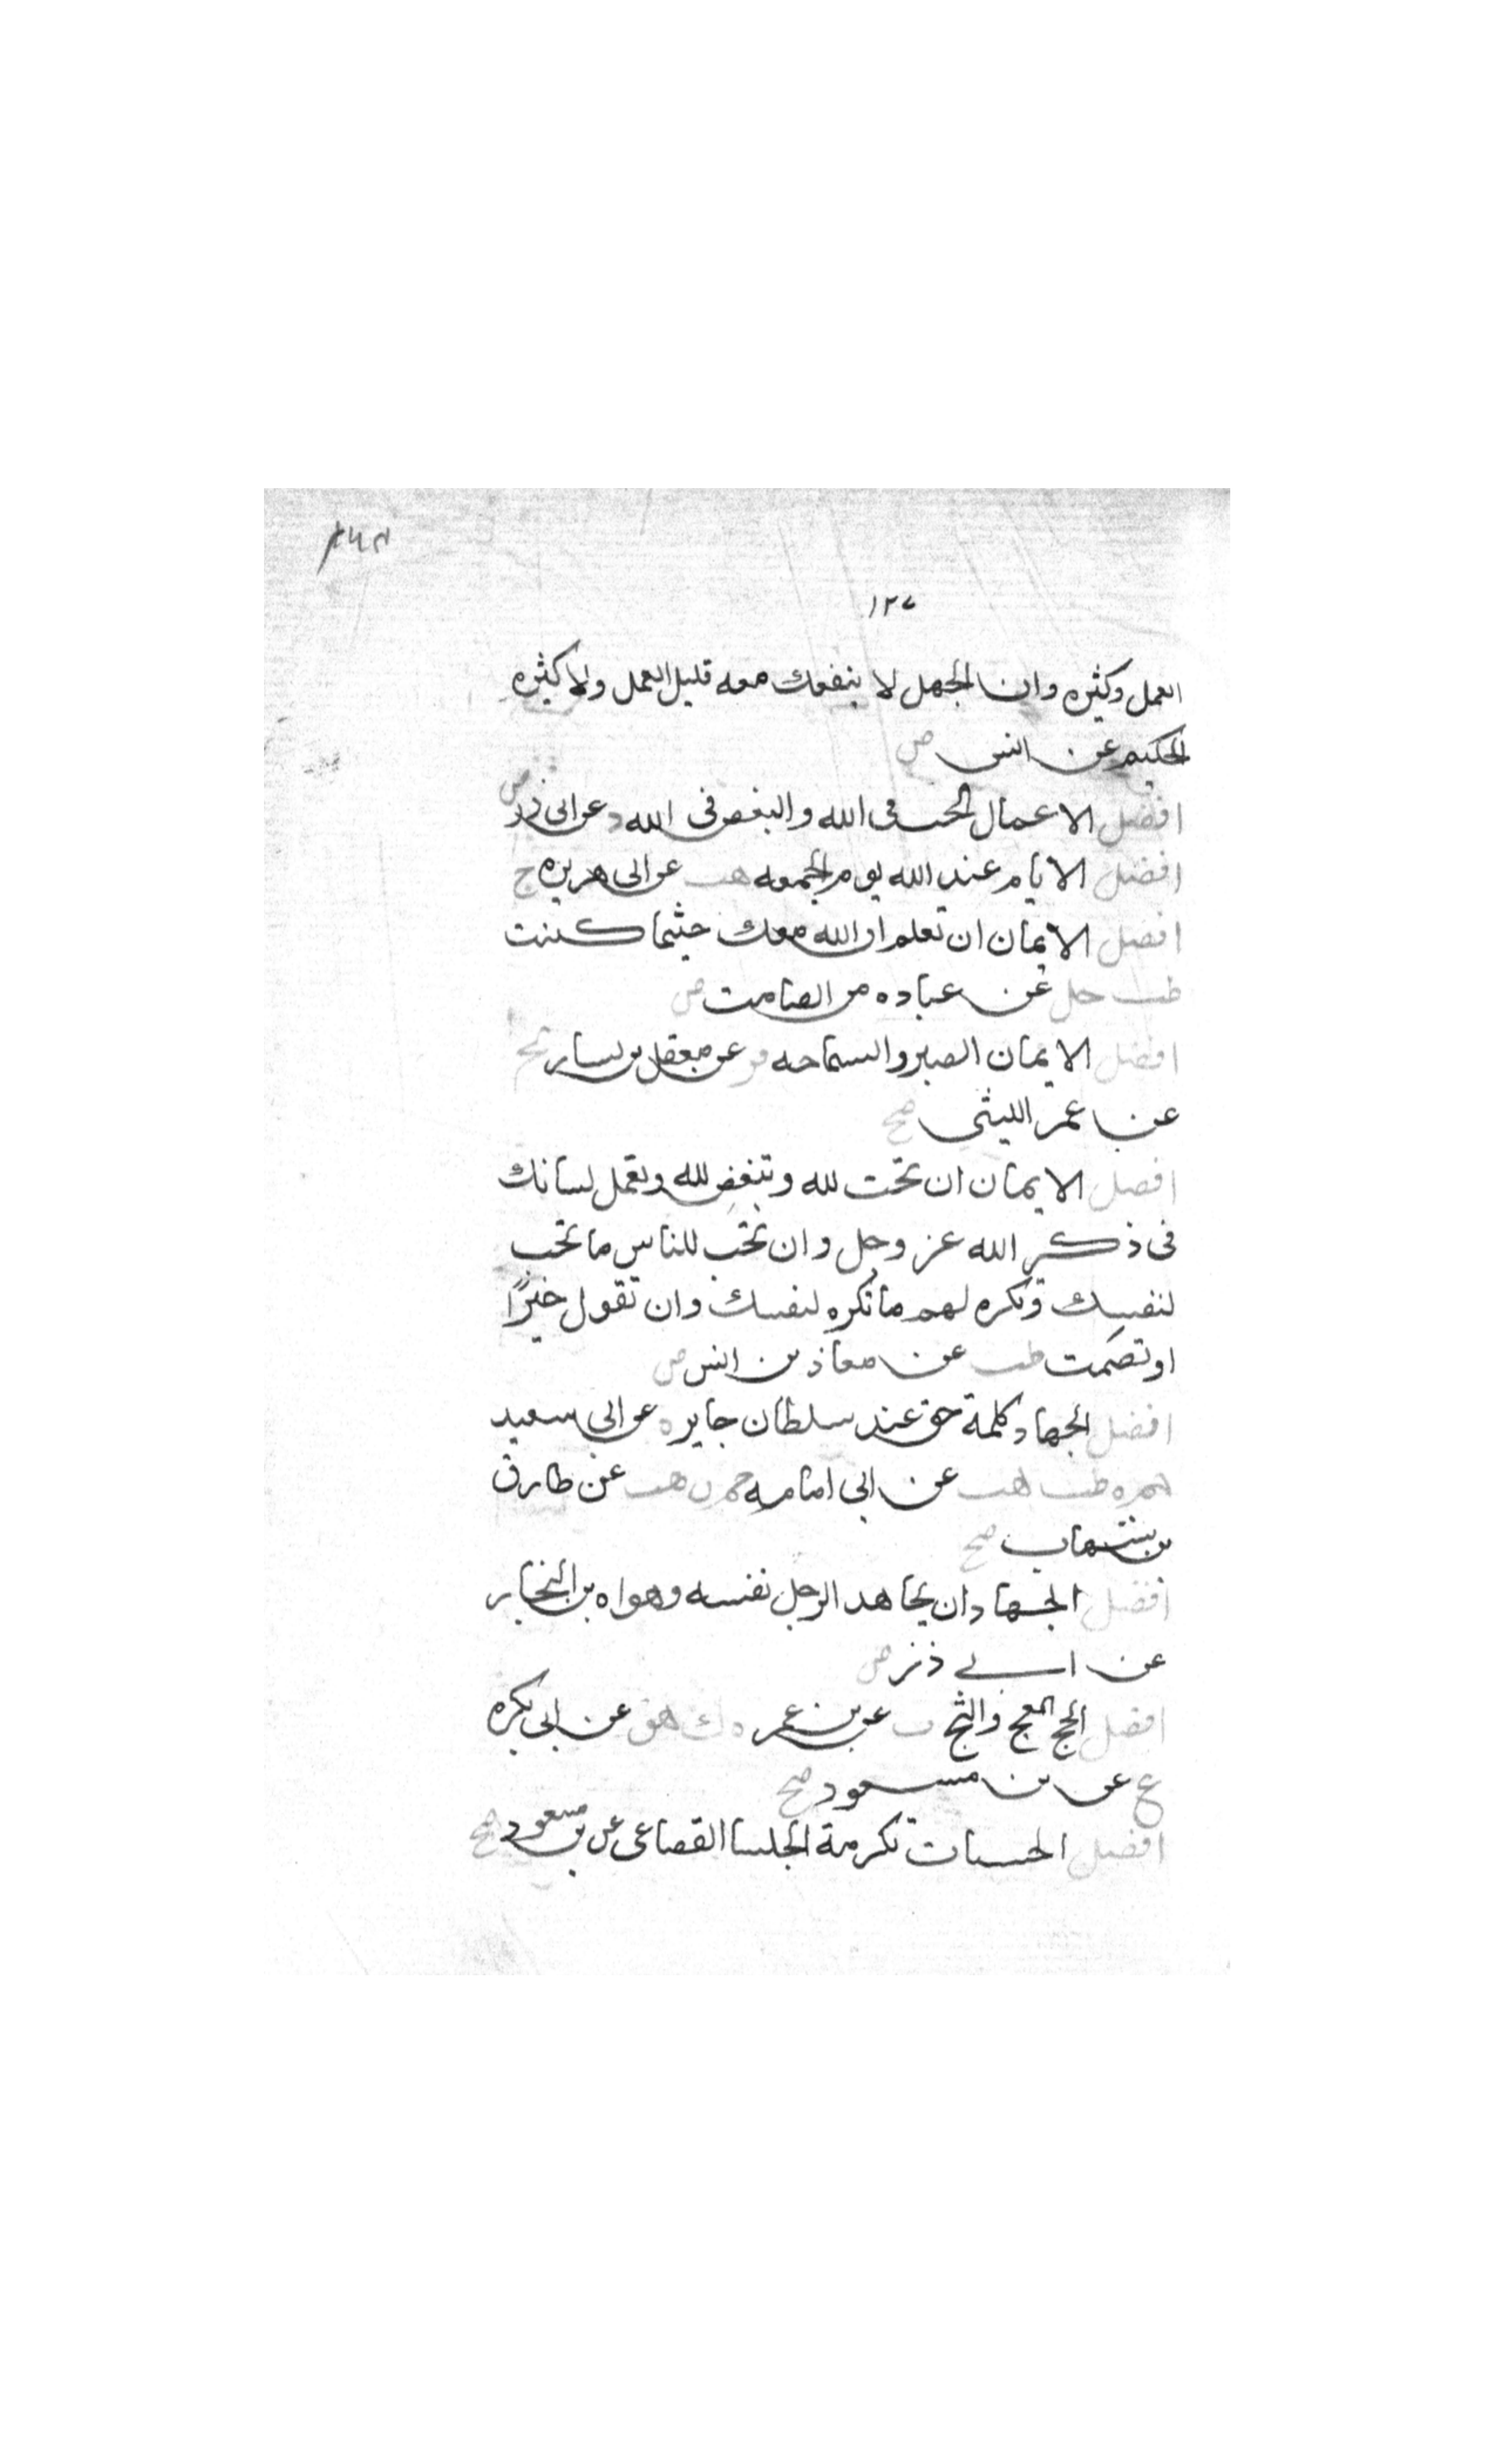 ١٢٧
العمل وكثيره وان الجهل لا ينفعك معه قليل العمل ولا كثيره
الحكيم عن انس ض
افضل الاعمال الحب فى الله والبغض فى الله د عن ابى ذر ض
افضل الايام عند الله يوم الجمعه هب عن ابى هريره ح
افضل الايمان ان تعلم ان الله معك حيثما كنت
طب حل عن عباده بن الصامت ض
افضل الايمان الصبر والسماحه فر عن معقل بن يسار تخ
عن عمر الليثى صح
افضل الايمان ان تحب لله وتبغض لله وتعمل لسانك
فى ذكر الله عز وجل وان تحب للناس ما تحب
لنفسك وتكره لهم ما تكره لنفسك وان تقول خيرًا
او تصمت طب عن معاذ بن انس ض
افضل الجهاد كلمة حق عند سلطان جاير ه عن ابى سعيد
حم ه طب هب عن ابى امامه حم ن هب عن طارق
بن شهاب صح
افضل الجهاد ان يجاهد الرجل نفسه وهواه بن النجار
عن ابى ذر ض
افضل الحج العج والثج ت عن بن عمر ه ك هق عن ابى بكره
ع عن بن مسعود صح
افضل الحسنات تكرمة الجلسا القضاعى عن بن مسعود صح